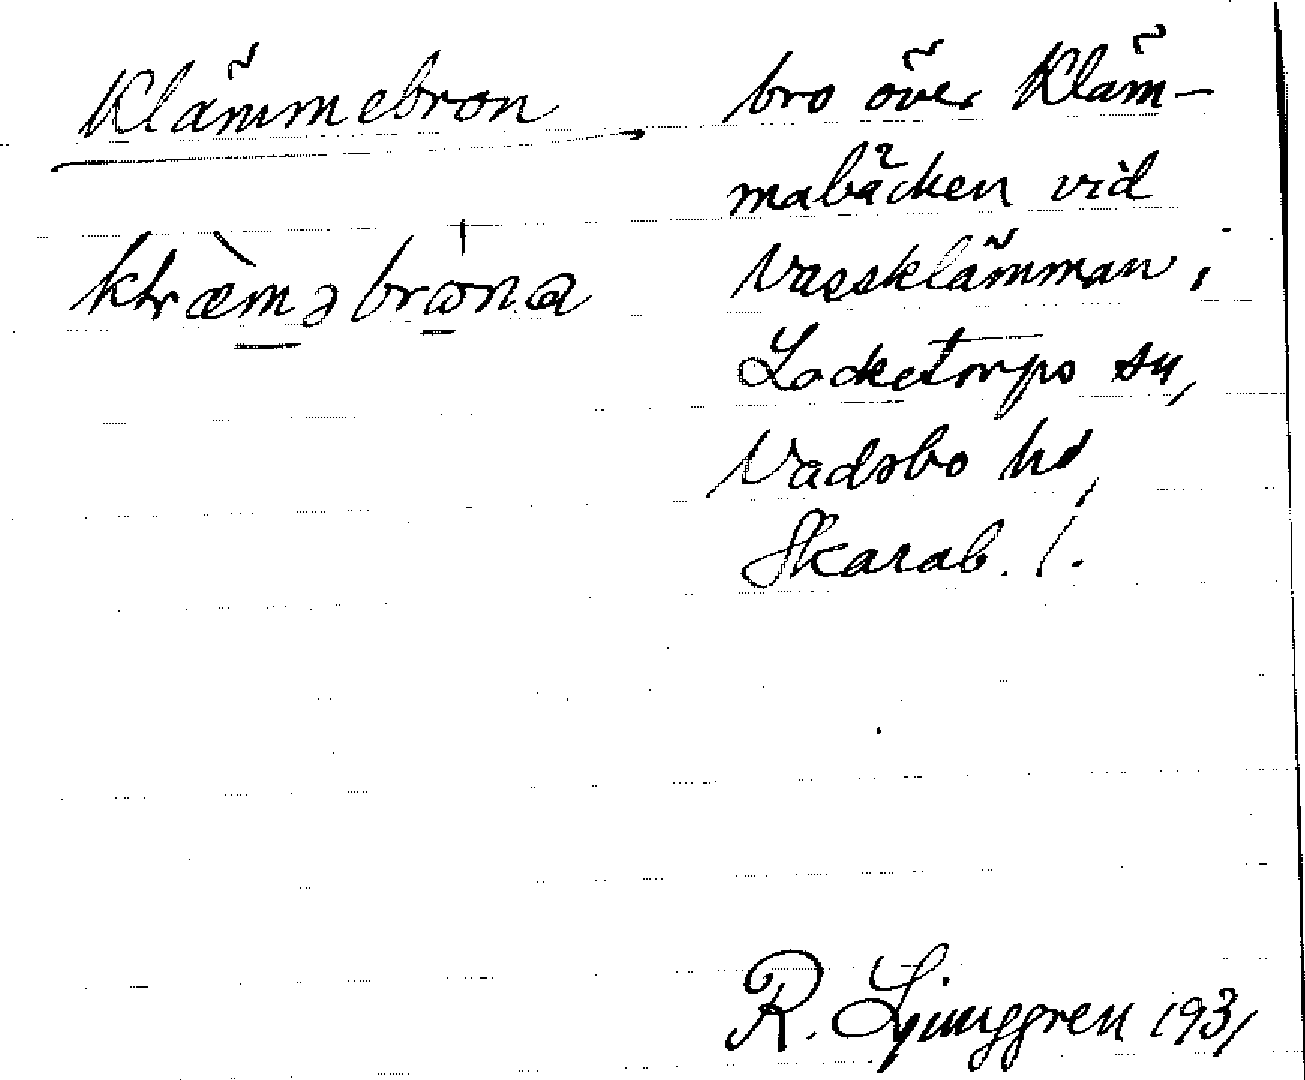 Klämmebron
bro över Kläm-
mabäcken vid
Vassklämman,
Locketorps sn,
Vadsbo hd,
Skarab. l.
R. Ljunggren 1931